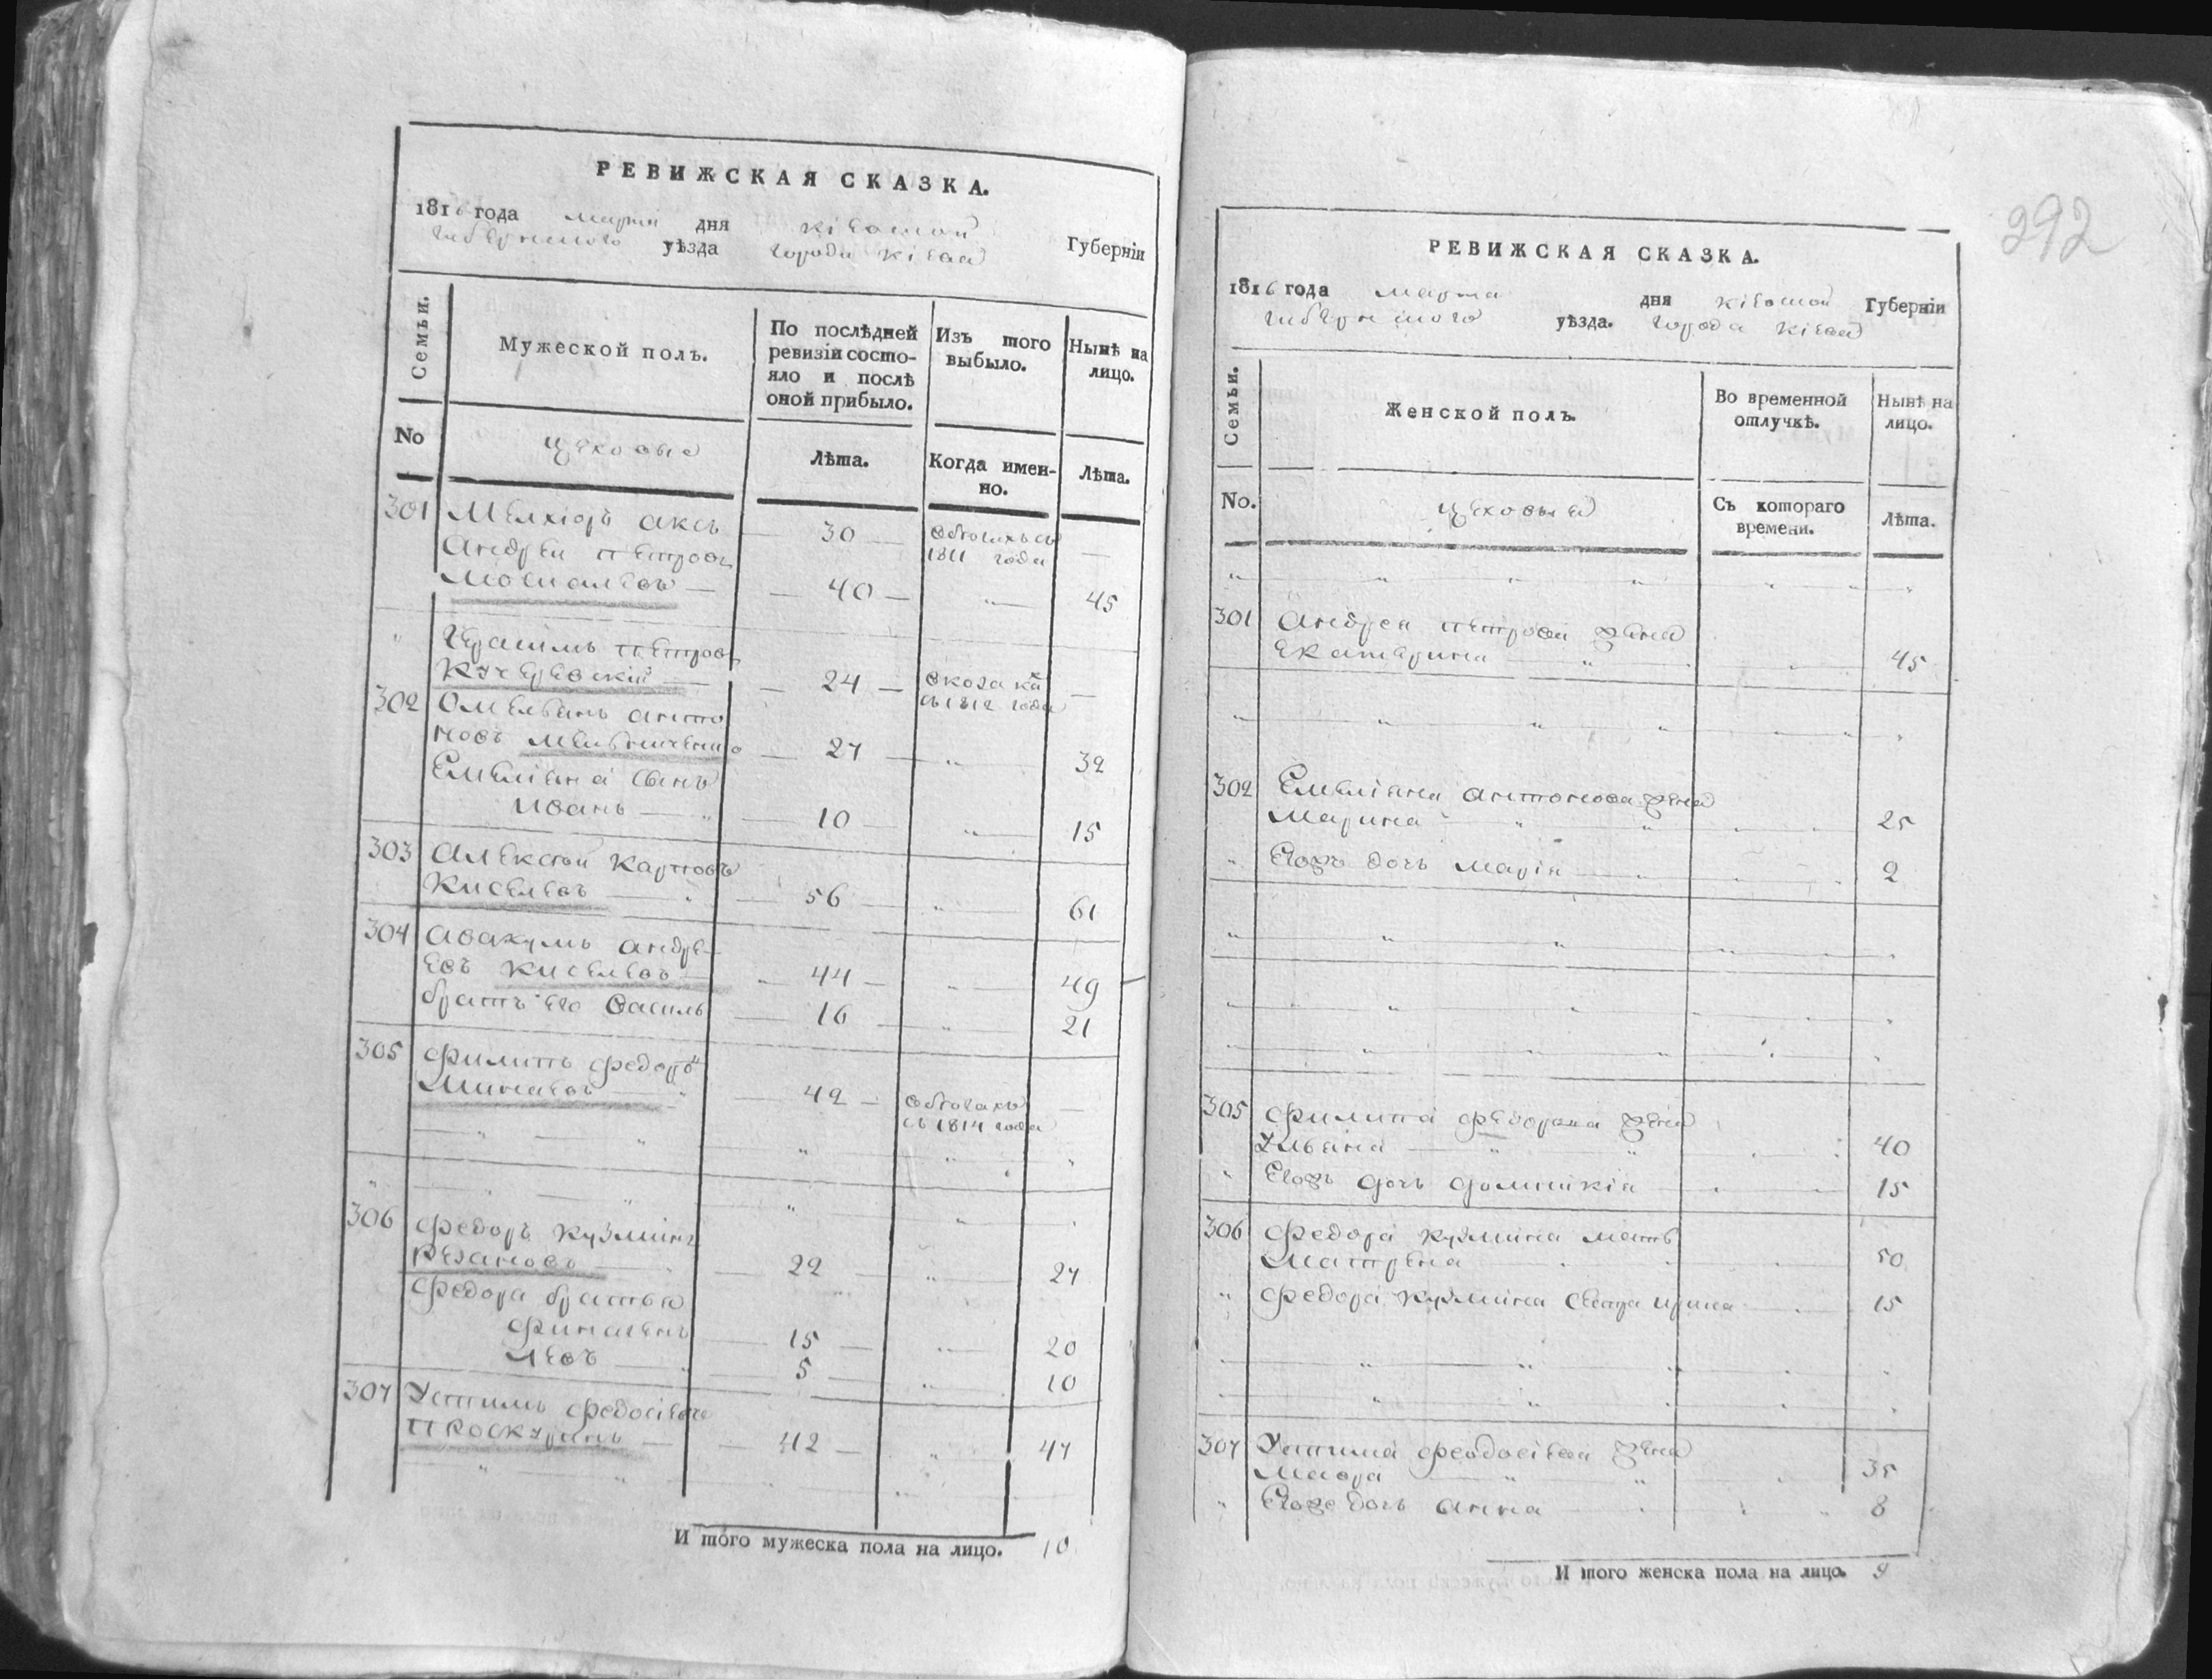 РЕВИЖСКАЯ СКАЗКА.
1816 года марта дня кіевской Губерніи
губернского уѣзда города кіева
Семьи. Мужеской полъ. По послѣдней ревизіи состояло и послѣ оной прибыло. Изъ того выбыло. Нынѣ на лицо.
No цеховые Лѣта. Когда именно. Лѣта.
301 Мелхіоръ 30 —
1811 года
Андреи петровъ
— 40 — " — 45
" Герасимъ петровъ
Кучеревскій — 24 —
съ 1812 года
302 Омельянъ анто
новъ мельниченко — 27 — " — 32
Емеліяна сынъ
Иванъ — " — 10 — " — 15
303 Алексѣй Карповъ
Киселевъ — " — 56 — " — 61
304 Авакумъ андре
евъ Киселевъ — 44 — " — 49
братъ его василь — 16 — " — 21
305 Филипъ федоровъ
Минаевъ — " — 42 —
съ 1814 года
306 Федоръ Кузминъ
Резановъ — 22 — " — 27
Федора братья
— 15 — " 20
Левъ — " — 5 — " 10
307 Устимъ федосіевъ
Проскуринъ — 42 — " — 47
И того мужеска пола на лицо. 10
292
РЕВИЖСКАЯ СКАЗКА.
1816 года марта дня кіевской Губерніи
губернского уѣзда. города кіева
Семьи. Женской полъ. Во временной отлучкѣ. Нынѣ на лицо.
No. цеховые Съ котораго времени. Лѣта.
301 Андрея петрова жена
Екатерина — " 45
302 Емеліяна антонова жена
Марина " " 25
" Егожъ дочь марія — " 2
305 Филипа федорова жена
Ульяна — " " 40
" Егожъ дочь домникія — 15
306 Федора кузмина мать
Матрена 50
" Федора кузмина сестра ирина 15
307 Устима феодосіева жена
Мавра " 35
" Егоже дочь анна 8
И того женска пола на лицо. 9